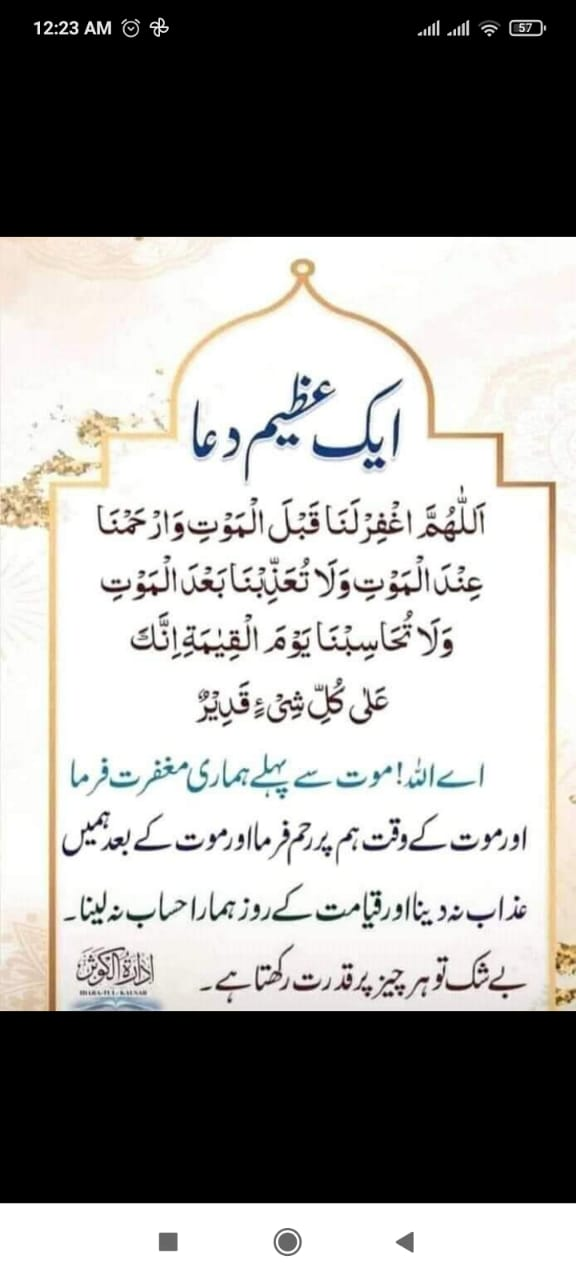 12:23 AM
57
ایک عظیم دعا
اَللّٰهُمَّ اغْفِرْ لَنَا قَبْلَ الْمَوْتِ وَارْحَمْنَا
عِنْدَ الْمَوْتِ وَلَا تُعَذِّبْنَا بَعْدَ الْمَوْتِ
وَلَا تُحَاسِبْنَا يَوْمَ الْقِيٰمَةِ اِنَّكَ
عَلٰی كُلِّ شَیْءٍ قَدِيْرٌ
اے اللہ! موت سے پہلے ہماری مغفرت فرما
اور موت کے وقت ہم پر رحم فرما اور موت کے بعد ہمیں
عذاب نہ دینا اور قیامت کے روز ہمارا حساب نہ لینا۔
بے شک تو ہر چیز پر قدرت رکھتا ہے۔
ادارة الکوثر
IDARA-TUL-KAUSAR